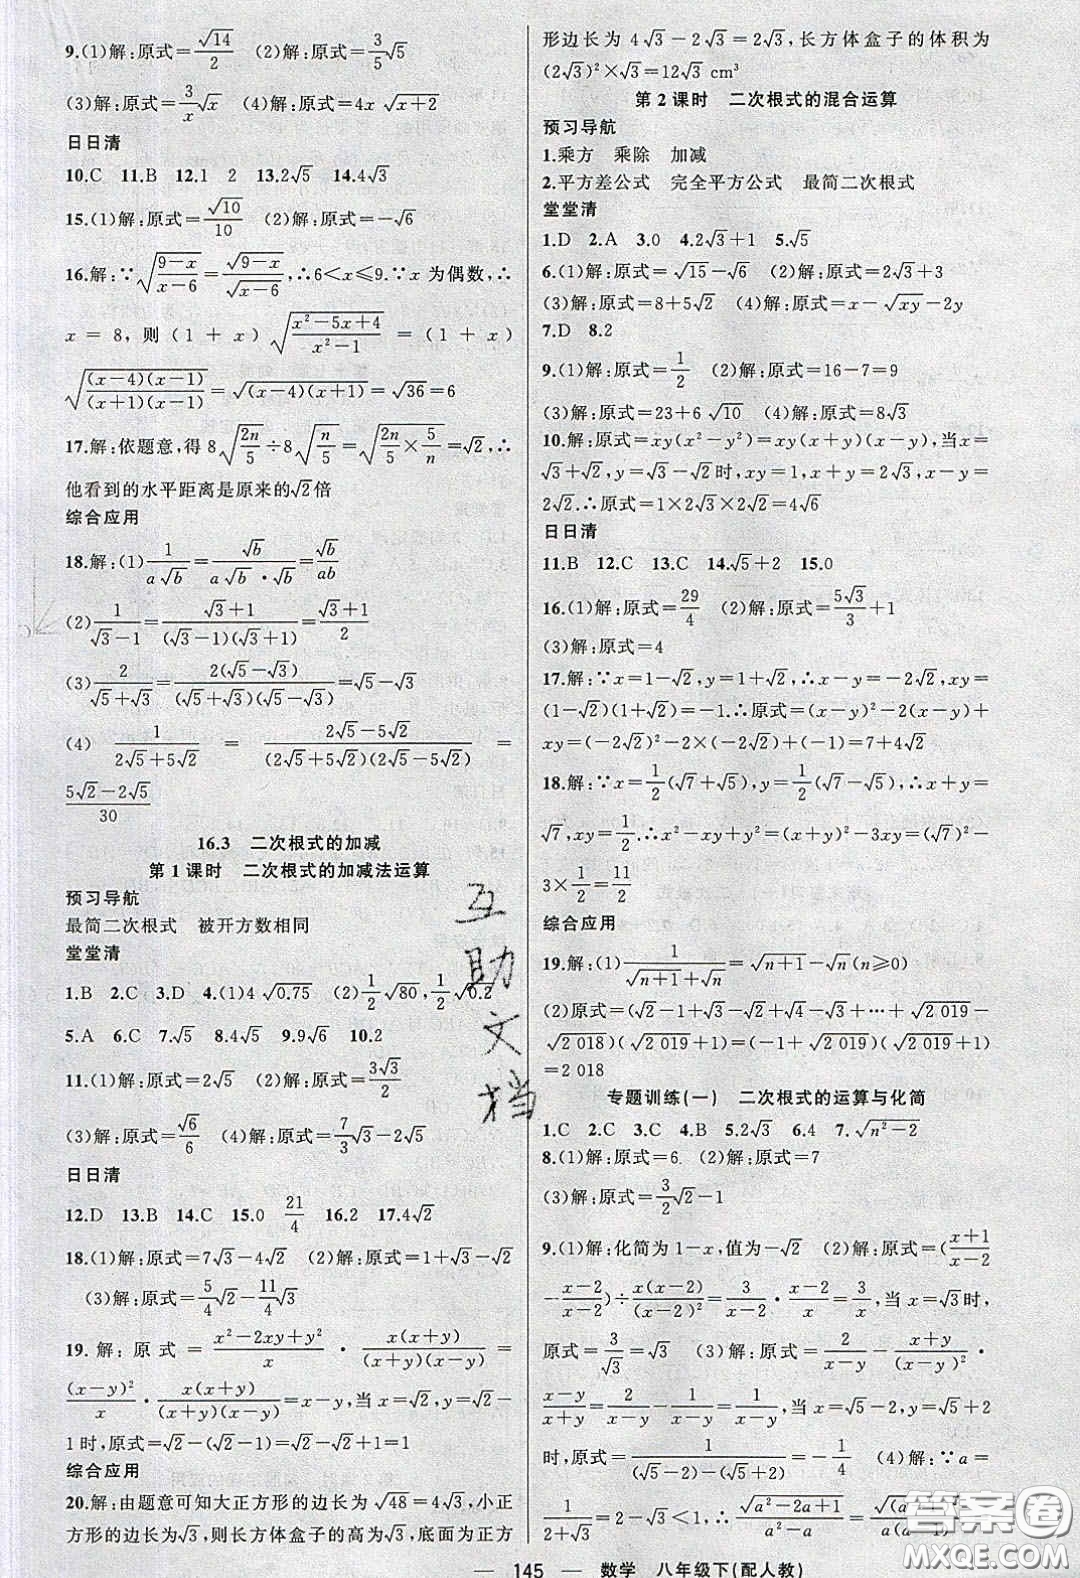 9.(1)解:原式=√14/2　(2)解:原式=3/5√5
(3)解:原式=3/x√x　(4)解:原式=4x√(x+2)
日日清
10.C　11.B　12.1　2　13.2√5　14.4√3
15.(1)解:原式=√10/10　(2)解:原式=-√6
16.解:∵√((9-x)/(x-6))=√(9-x)/√(x-6),∴6<x≤9.∵x为偶数,∴
x=8,则(1+x)√((x²-5x+4)/(x²-1))=(1+x)
√((x-4)(x-1)/((x+1)(x-1)))=√((x-4)(x+1))=√36=6
17.解:依题意,得8√(2n/5)÷8√(n/5)=√(2n/5×5/n)=√2,∴
他看到的水平距离是原来的√2倍
综合应用
18.解:(1)1/(a√b)=√b/(a√b·√b)=√b/ab
(2)1/(√3-1)=(√3+1)/((√3-1)(√3+1))=(√3+1)/2
(3)2/(√5+√3)=2(√5-√3)/((√5+√3)(√5-√3))=√5-√3
(4)1/(2√5+5√2)=(2√5-5√2)/((2√5+5√2)(2√5-5√2))=
(5√2-2√5)/30
16.3　二次根式的加减
第1课时　二次根式的加减法运算
预习导航
最简二次根式　被开方数相同
堂堂清
1.B　2.C　3.D　4.(1)4√0.75　(2)1/2√80,1/2√0.2
5.A　6.C　7.√5　8.4√5　9.9√6　10.2
11.(1)解:原式=2√5　(2)解:原式=3√3/2
(3)解:原式=√6/6　(4)解:原式=7/3√3-2√5
日日清
12.D　13.B　14.C　15.0　21/4　16.2　17.4√2
18.(1)解:原式=7√3-4√2　(2)解:原式=1+√3-√2
(3)解:原式=5/4√2-11/4√3
19.解:原式=(x²-2xy+y²)/x·x(x+y)/((x+y)(x-y))=
(x-y)²/x·x(x+y)/((x+y)(x-y))=x-y,当x=√2,y=√2-
1时,原式=√2-(√2-1)=√2-√2+1=1
综合应用
20.解:由题意可知大正方形的边长为√48=4√3,小正
方形的边长为√3,则长方体盒子的高为√3,底面为正方
形边长为4√3-2√3=2√3,长方体盒子的体积为
(2√3)²×√3=12√3 cm³
第2课时　二次根式的混合运算
预习导航
1.乘方　乘除　加减
2.平方差公式　完全平方公式　最简二次根式
堂堂清
1.D　2.A　3.0　4.2√3+1　5.√5
6.(1)解:原式=√15-√6　(2)解:原式=2√3+3
(3)解:原式=8+5√2　(4)解:原式=x-√xy-2y
7.D　8.2
9.(1)解:原式=1/2　(2)解:原式=16-7=9
(3)解:原式=23+6√10　(4)解:原式=8√3
10.解:原式=xy(x²-y²)=xy(x+y)(x-y),当x=
√3+√2,y=√3-√2时,xy=1,x+y=2√3,x-y=
2√2.∴原式=1×2√3×2√2=4√6
日日清
11.B　12.C　13.C　14.√5+2　15.0
16.(1)解:原式=29/4　(2)解:原式=5√3/3+1
(3)解:原式=4
17.解:∵x=1-√2,y=1+√2,∴x-y=-2√2,xy=
(1-√2)(1+√2)=-1.∴原式=(x-y)²-2(x-y)+
xy=(-2√2)²-2×(-2√2)+(-1)=7+4√2
18.解:∵x=1/2(√7+√5),y=1/2(√7-√5),∴x+y=
√7,xy=1/2.∴x²-xy+y²=(x+y)²-3xy=(√7)²-
3×1/2=11/2
综合应用
19.解:(1)1/(√(n+1)+√n)=√(n+1)-√n(n≥0)
(2)原式=(√2-1+√3-√2+√4-√3+…+√2 019-
√2 018)(√2 019+1)=(√2 019-1)(√2 019+1)
=2 018
专题训练(一)　二次根式的运算与化简
1.C　2.C　3.C　4.B　5.2√3　6.4　7.√(n²-2)
8.(1)解:原式=6.　(2)解:原式=7
(3)解:原式=3/2√2-1
9.(1)解:化简为1-x,值为-√2　(2)解:原式=((x+1)/(x-2)
-(x-2)/(x-2))÷x(x-2)/(x-2)²=3/(x-2)·(x-2)/x=3/x,当x=√3时,
原式=3/√3=√3　(3)解:原式=2/(x-y)-(x+y)/(x-y)²·
(x-y)/(x+y)=2/(x-y)-1/(x-y)=1/(x-y),当x=√5-2,y=√5+2
时,原式=1/((√5-2)-(√5+2))=-1/4　(4)解:∵a=
1/(2+√3)=2-√3<1,∴原式=√(a²-2a+1)/(a²-a)=
145 — 数学　八年级下(配人教)
互助文档
答案圈
MXQE.COM